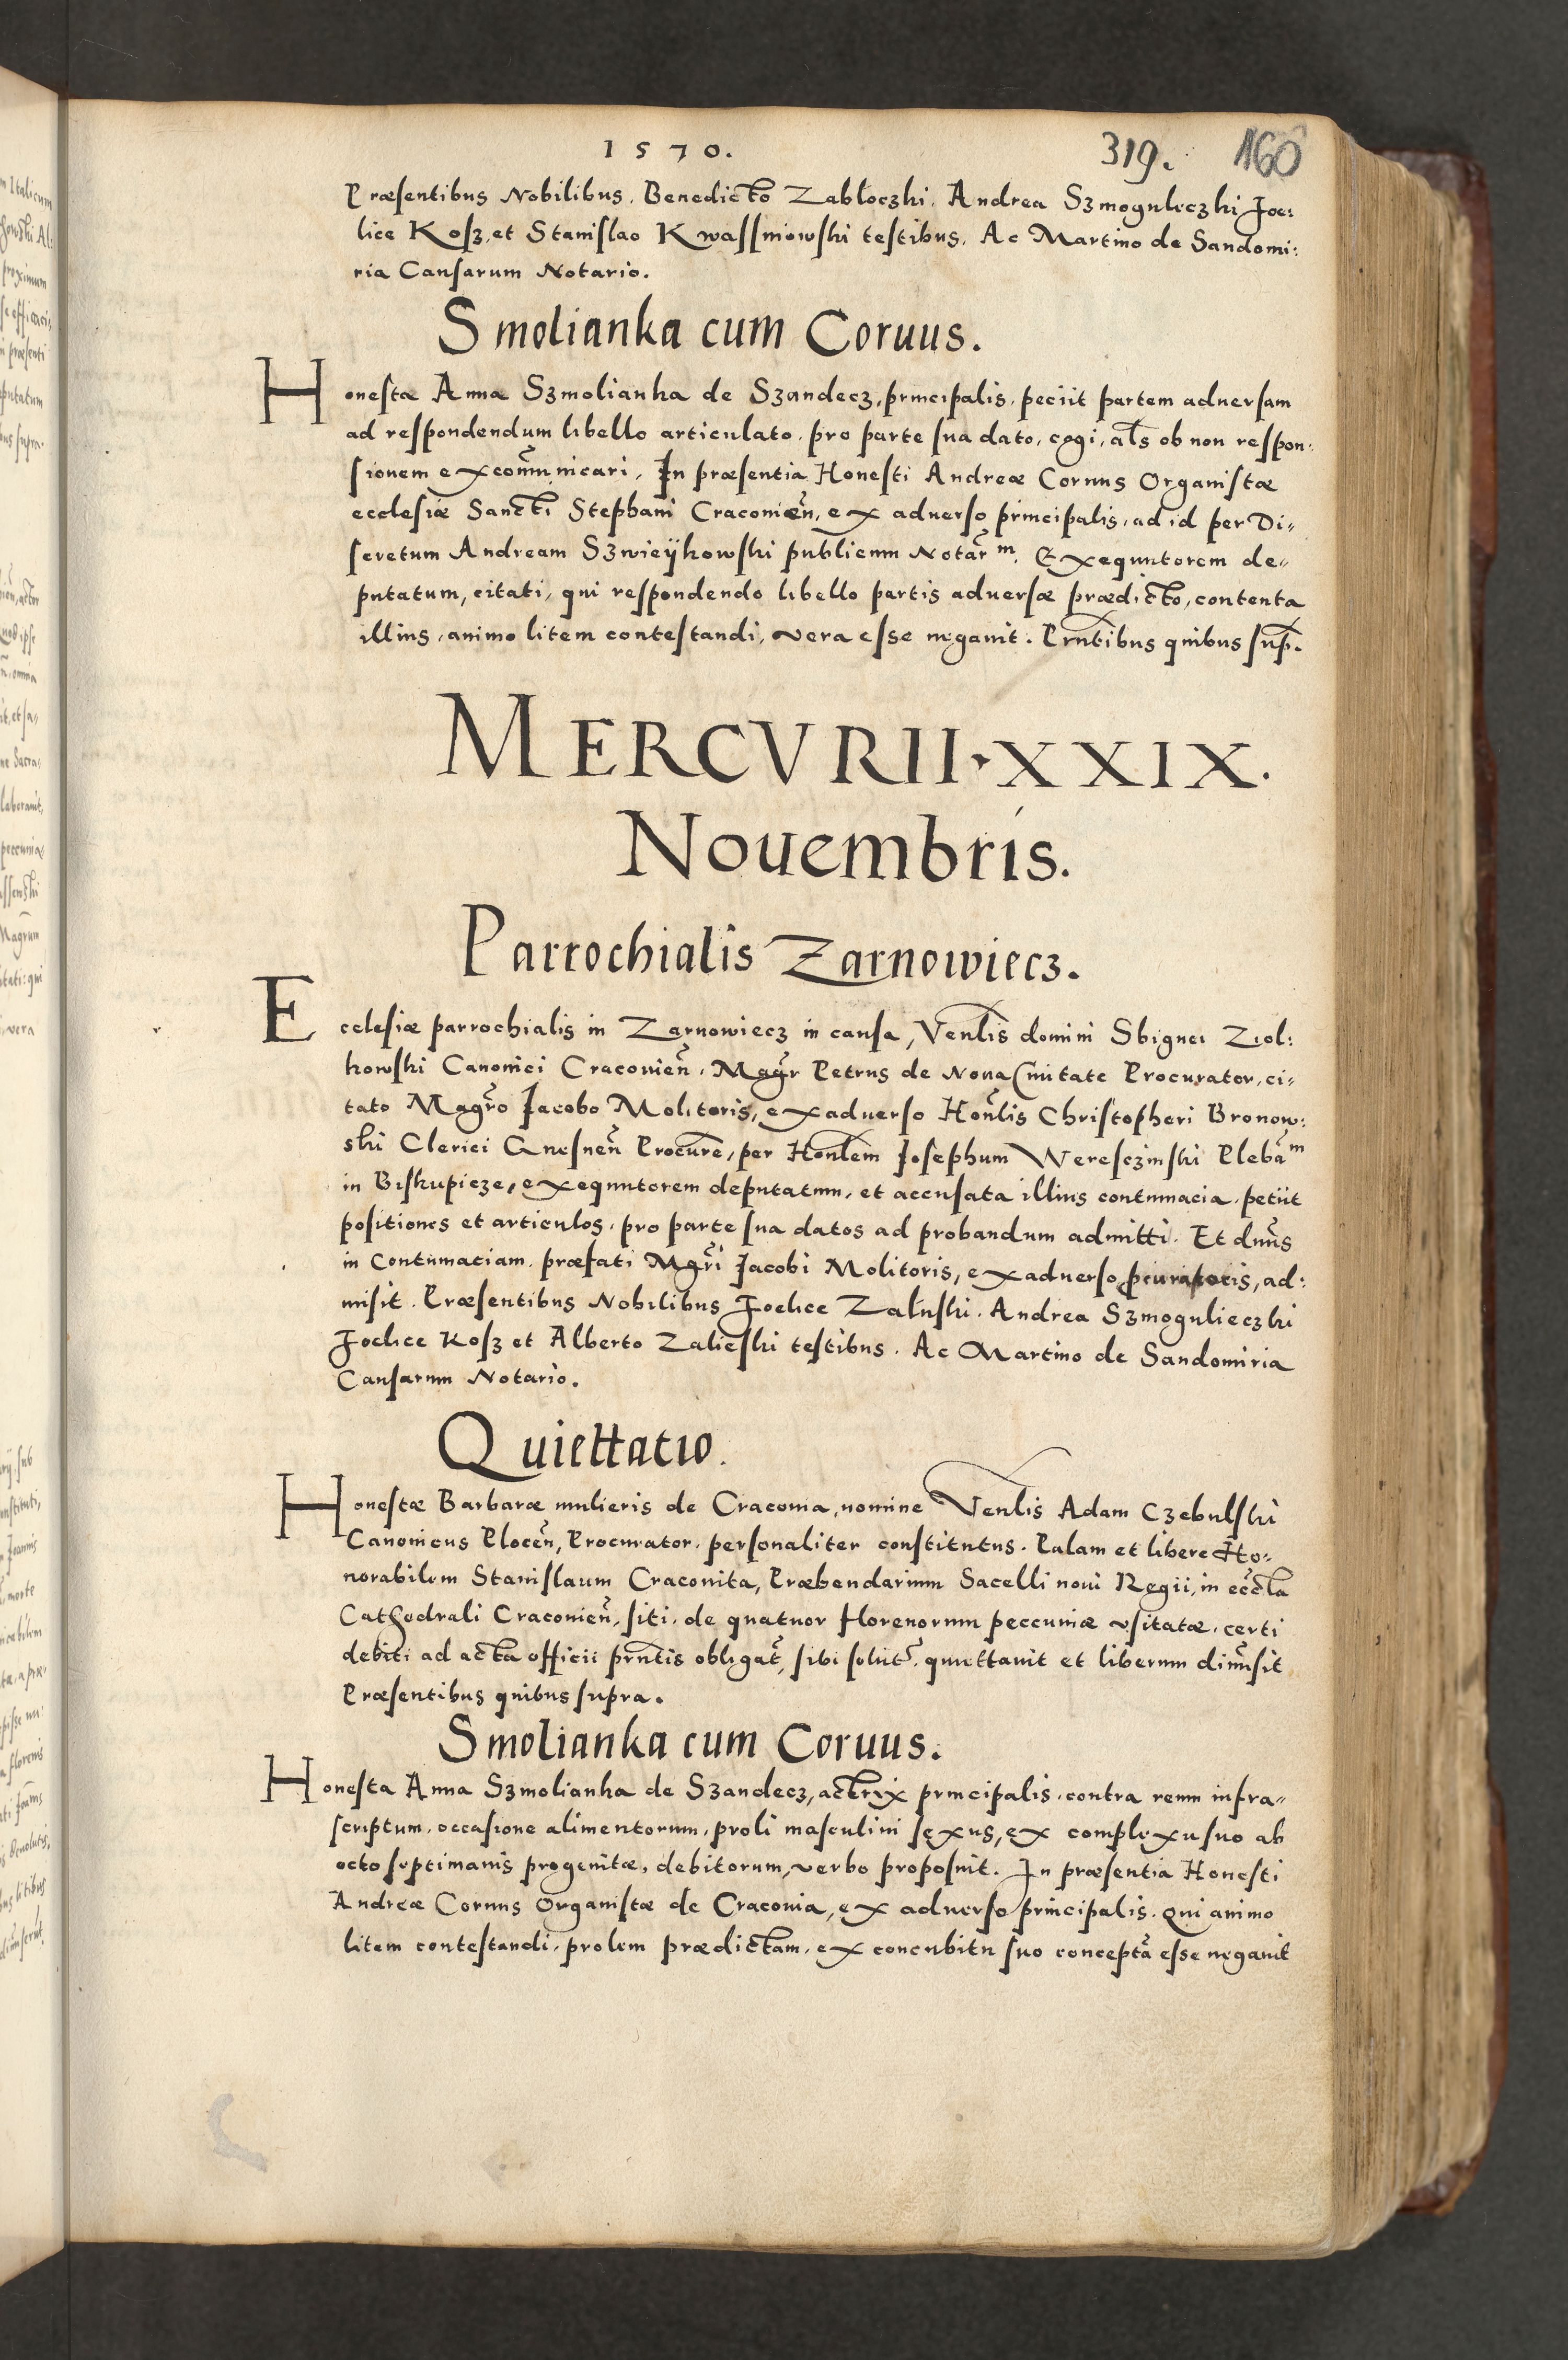 1570.
319. 160
Præsentibus Nobilibus. Benedicto Zabloczki. Andrea Szmoguleczki Foe:
lice Kosz, et Stanislao Kwassniowski testibus. Ac Martino de Sandomi:
ria Causarum Notario.
Smolianka cum Coruus.
Honestæ Annæ Szmolianka de Szandecz, principalis. peciit partem aduersam
ad respondendum libello articulato. pro parte sua dato, cogi, als̃ ob non respon:
sionem excom̃unicari. In præsentia Honesti Andreæ Coruus Organistæ
ecclesiæ Sancti Stephani Cracouieñ, ex aduerso principalis, ad id per Di„
scretum Andream Szwieÿkowski publicum Notar̃m. Exequutorem de„
putatum, citati, qui respondendo libello partis aduersæ prædicto, contenta
illius, animo litem contestandi, vera esse negauit. Prñtibus quibus sup̃.
MERCVRII·XXIX.
Nouembris.
Parrochialis Zarnowiecz.
Ecclesiæ parrochialis in Zarnowiecz in causa, Venl̃is domini Sbignei Ziol:
kowski Canonici Cracouieñ. Mag̃r Petrus de Noua Ciuitate Procurator, ci„
tato Mag̃ro Jacobo Molitoris, ex aduerso Hon̄lis Christopheri Bronow:
ski Clerici Gnesneñ Procur̃e, per Honl̃em Josephum Veresczinski Plebãm
in Biskupicze, exequutorem deputatum, et accusata illius contumacia. petiit
positiones et articulos, pro parte sua datos ad probandum admitti. Et dñus
in contumaciam. præfati Mgr̃i Jacobi Molitoris, ex aduerso procuratoris, ad:
misit. Præsentibus Nobilibus Foelice Zaluski. Andrea Szmogulieczki
Foelice Kosz et Alberto Zalieski testibus. Ac Martino de Sandomiria
Causarum Notario.
Quiettatio.
Honestæ Barbaræ mulieris de Cracouia, nomine Venl̃is Adam Czebulski
Canonicus Ploceñ, Procurator. personaliter constitutus. Palam et libere Ho„
norabilem Stanislaum Craconita, Præbendarium Sacelli noui Regii, in ecc̃la
Cathedrali Cracouieñ, siti. de quatuor florenorum peccuniæ vsitatæ, certi
debiti ad acta officii prñtis obligat̃, sibi solut̃. quiettauit et liberum dim̃isit
Præsentibus quibus supra.
Smolianka cum Coruus.
Honesta Anna Szmolianka de Szandecz, actrix principalis, contra reum infra„
scriptum, occasione alimentorum, proli masculini sexus, ex complexu suo ab
octo septimanis progenitæ, debitorum, verbo proposuit. In præsentia Honesti
Andreæ Coruus Organistæ de Cracouia, ex aduerso principalis. qui animo
litem contestandi, prolem prædictam, ex concubitu suo conceptã esse negauit